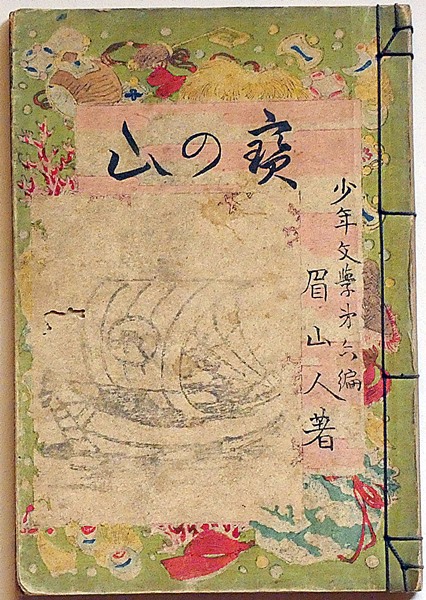 寳の山
少年文學第六編
眉山人著